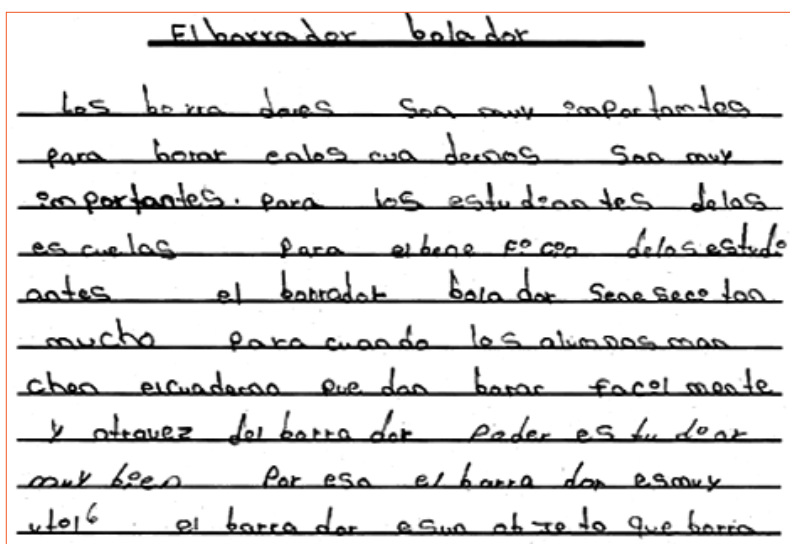 El borrador bolador
Los borra dores Son muy importantes
para borrar enlos cua dernos Son muy
importantes. para los estudian tes delas
es cuelas para elbene fi cio delos estudi
antes el borrador bola dor Sene Seci tan
mucho para cuando los alumnos man
chen elcuaderno pue dan borar facil mente
y otravez del borra dor poder es tu diar
muy bien Por eso el borra dor esmuy
util6 el borra dor esun ob je to que borra